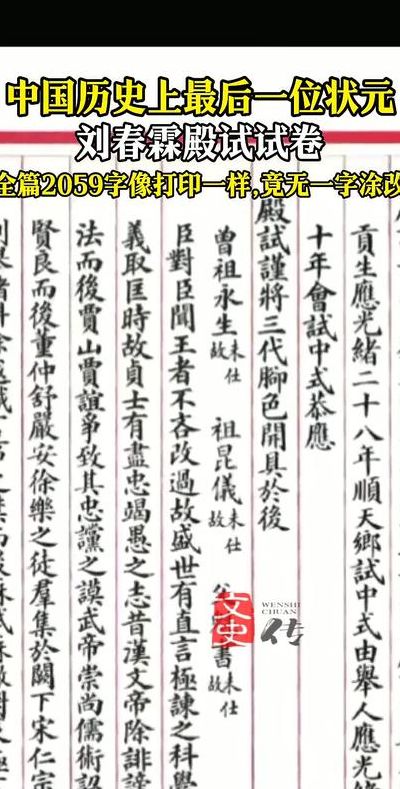 中国历史上最后一位状元
刘春霖殿试试卷
全篇2059字像打印一样,竟无一字涂改
貢生應光緒二十八年順天鄉試中式由舉人應光緒
十年會試中式恭應
殿試謹將三代腳色開具於後
曾祖永生未仕故 祖昆儀未仕故 書未仕故
臣對臣聞王者不吝改過故盛世有直言極諫之科學
義取匡時故貢士有盡忠竭愚之志昔漢文帝除誹謗
法而後賈山賈誼爭致其忠讜之謨武帝崇尚儒術詔
賢良而後重仲舒嚴安徐樂之徒羣集於闕下宋仁宗
文史
WENSHI
CHUAN
传